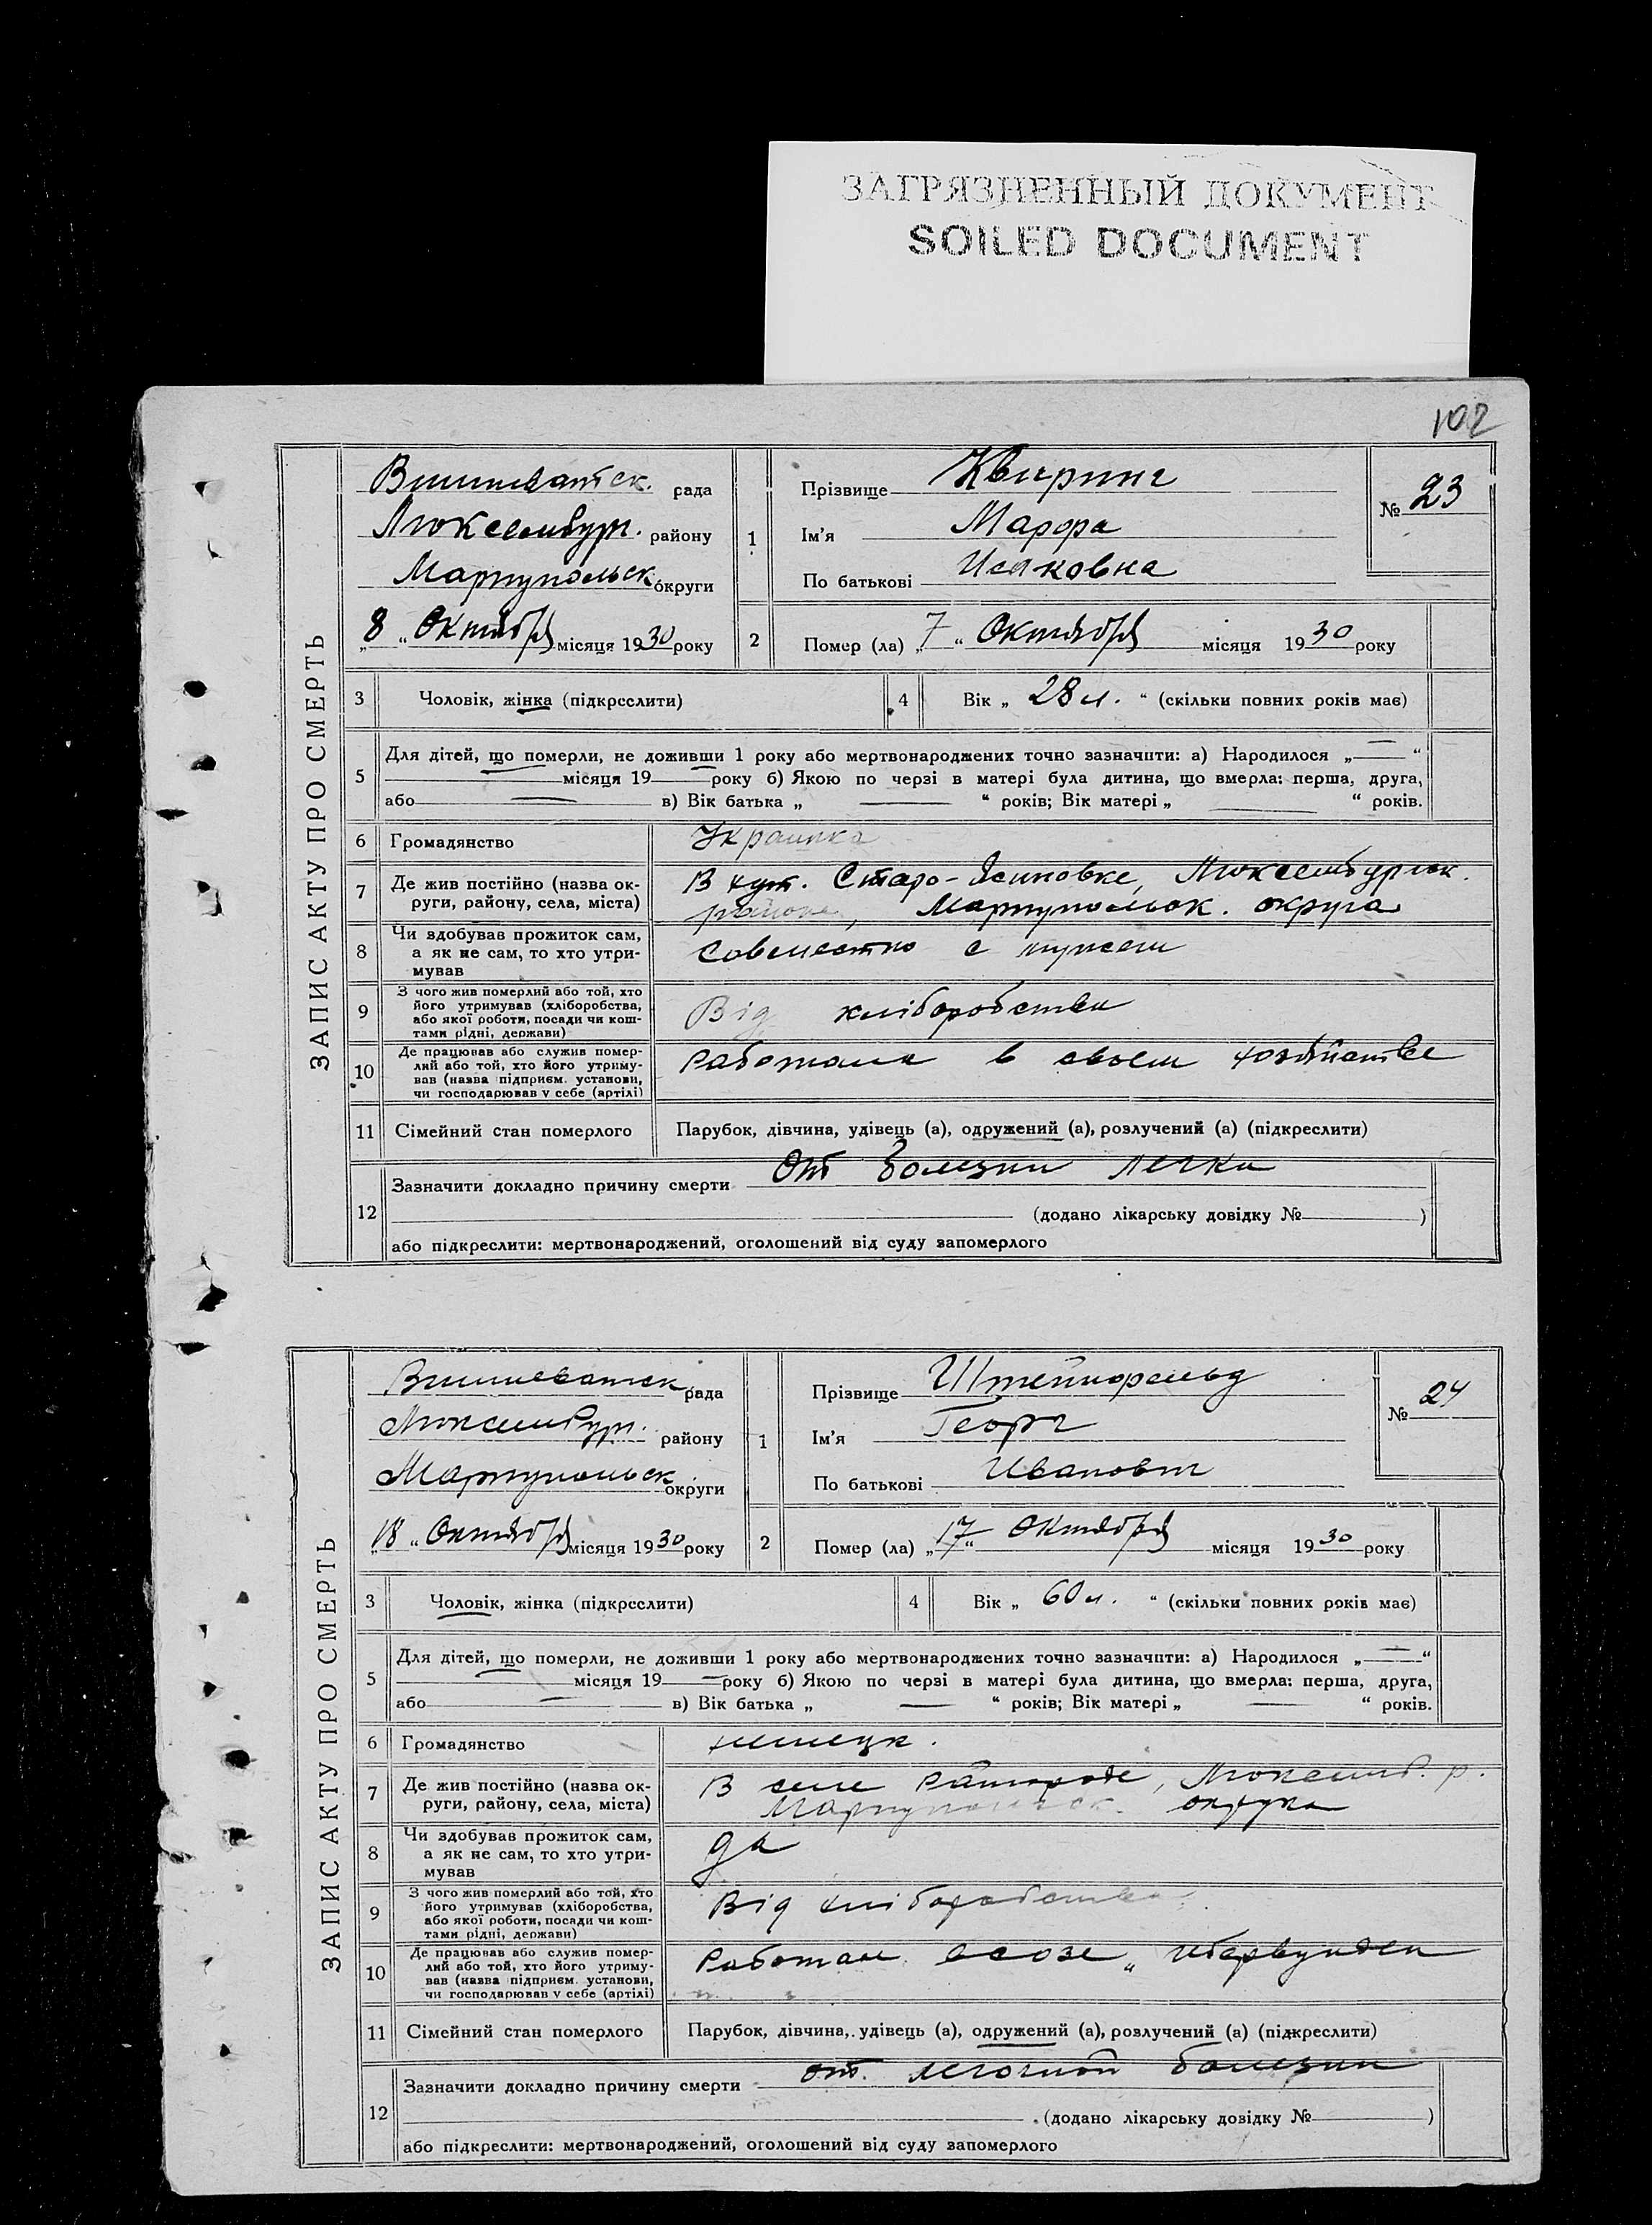 ЗАГРЯЗНЕННЫЙ ДОКУМЕНТ
SOILED DOCUMENT
102
ЗАПИС АКТУ ПРО СМЕРТЬ
Вишневатск. рада
Люксембург. району
Мариупольск. округи
„8“ Октября місяця 1930 року
1
Прізвище Квиринг
Ім'я
По батькові Исаковна
№ 23
2 Помер (ла) „7“ Октября місяця 1930 року
3 Чоловік, жінка (підкреслити)
4 Вік „28 л.“ (скільки повних років має)
5 Для дітей, що померли, не доживши 1 року або мертвонароджених точно зазначити: а) Народилося „—“
місяця 19— року б) Якою по черзі в матері була дитина, що вмерла: перша, друга,
або — в) Вік батька „ — “ років; Вік матері „ — “ років.
6 Громадянство Украинка
7 Де жив постійно (назва округи, району, села, міста) В хут. Старо-Ясиновке, Люксембургск.
района, Мариупольск. округа
8 Чи здобував прожиток сам, а як не сам, то хто утримував Совместно с мужем
9 З чого жив померлий або той, хто його утримував (хліборобства, або якої роботи, посади чи коштами рідні, держави) Від хліборобства
10 Де працював або служив померлий або той, хто його утримував (назва підприєм. установи, чи господарював у себе (артілі) Работала в своем хозяйстве
11 Сімейний стан померлого Парубок, дівчина, удівець (а), одружений (а), розлучений (а) (підкреслити)
12 Зазначити докладно причину смерти От болезни легки
(додано лікарську довідку № )
або підкреслити: мертвонароджений, оголошений від суду запомерлого
ЗАПИС АКТУ ПРО СМЕРТЬ
Вишневатск рада
Люксембург. району
Мариупольск. округи
„18“ Октября місяця 1930 року
1
Прізвище Штейнфельд
Ім'я Георг
По батькові Иванович
№ 24
2 Помер (ла) „17“ Октября місяця 1930 року
3 Чоловік, жінка (підкреслити)
4 Вік „60 л.“ (скільки повних років має)
5 Для дітей, що померли, не доживши 1 року або мертвонароджених точно зазначити: а) Народилося „—“
місяця 19— року б) Якою по черзі в матері була дитина, що вмерла: перша, друга,
або — в) Вік батька „ — “ років; Вік матері „ — “ років.
6 Громадянство немецк.
7 Де жив постійно (назва округи, району, села, міста) В селе Райгороде, Люксемб. р.
Мариупольск. округа
8 Чи здобував прожиток сам, а як не сам, то хто утримував да
9 З чого жив померлий або той, хто його утримував (хліборобства, або якої роботи, посади чи коштами рідні, держави) Від хліборобства
10 Де працював або служив померлий або той, хто його утримував (назва підприєм. установи, чи господарював у себе (артілі) Работал в созе „Ибервунден
11 Сімейний стан померлого Парубок, дівчина, удівець (а), одружений (а), розлучений (а) (підкреслити)
12 Зазначити докладно причину смерти от. легочной болезни
(додано лікарську довідку № )
або підкреслити: мертвонароджений, оголошений від суду запомерлого